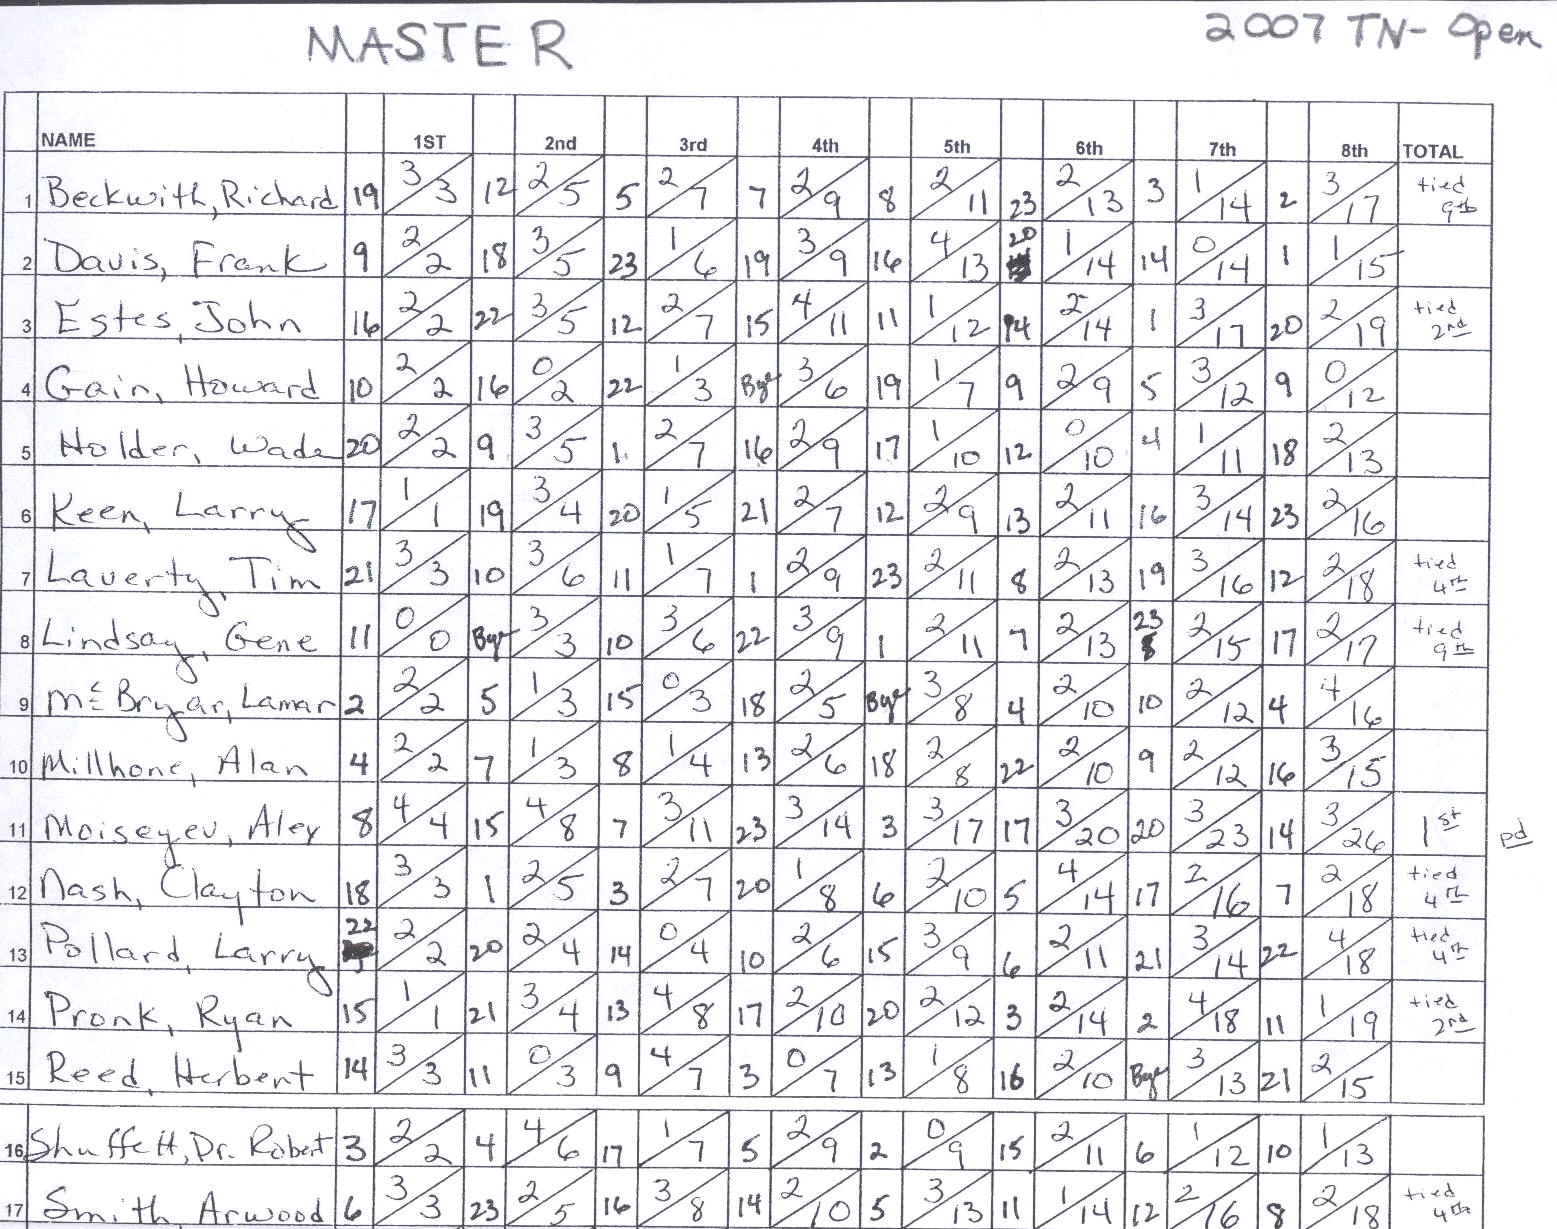 MASTER
2007 TN- Open
NAME 1ST 2nd 3rd 4th 5th 6th 7th 8th TOTAL
1 Beckwith, Richard 19 3/3 12 2/5 5 2/7 7 2/9 8 2/11 23 2/13 3 1/14 2 3/17 tied 9th
2 Davis, Frank 9 2/2 18 3/5 23 1/6 19 3/9 16 4/13 20 1/14 14 0/14 1 1/15
3 Estes, John 16 2/2 22 3/5 12 2/7 15 4/11 11 1/12 14 2/14 1 3/17 20 2/19 tied 2nd
4 Gain, Howard 10 2/2 16 0/2 22 1/3 Bye 3/6 19 1/7 9 2/9 5 3/12 9 0/12
5 Holder, Wade 20 2/2 9 3/5 1 2/7 16 2/9 17 1/10 12 0/10 4 1/11 18 2/13
6 Keen, Larry 17 1/1 19 3/4 20 1/5 21 2/7 12 2/9 13 2/11 16 3/14 23 2/16
7 Laverty, Tim 21 3/3 10 3/6 11 1/7 1 2/9 23 2/11 8 2/13 19 3/16 12 2/18 tied 4th
8 Lindsay, Gene 11 0/0 Bye 3/3 10 3/6 22 3/9 1 2/11 7 2/13 23 2/15 17 2/17 tied 9th
9 McBryar, Lamar 2 2/2 5 1/3 15 0/3 18 2/5 Bye 3/8 4 2/10 10 2/12 4 4/16
10 Millhone, Alan 4 2/2 7 1/3 8 1/4 13 2/6 18 2/8 22 2/10 9 2/12 16 3/15
11 Moiseyev, Alex 8 4/4 15 4/8 7 3/11 23 3/14 3 3/17 17 3/20 20 3/23 14 3/26 1st pd
12 Nash, Clayton 18 3/3 1 2/5 3 2/7 20 1/8 6 2/10 5 4/14 17 2/16 7 2/18 tied 4th
13 Pollard, Larry 22 2/2 20 2/4 14 0/4 10 2/6 15 3/9 6 2/11 21 3/14 22 4/18 tied 4th
14 Pronk, Ryan 15 1/1 21 3/4 13 4/8 17 2/10 20 2/12 3 2/14 2 4/18 11 1/19 tied 2nd
15 Reed, Herbert 14 3/3 11 0/3 9 4/7 3 0/7 13 1/8 16 2/10 Bye 3/13 21 2/15
16 Shuffett, Dr. Robert 3 2/2 4 4/6 17 1/7 5 2/9 2 0/9 15 2/11 6 1/12 10 1/13
17 Smith, Arwood 6 3/3 23 2/5 16 3/8 14 2/10 5 3/13 11 1/14 12 2/16 8 2/18 tied 4th